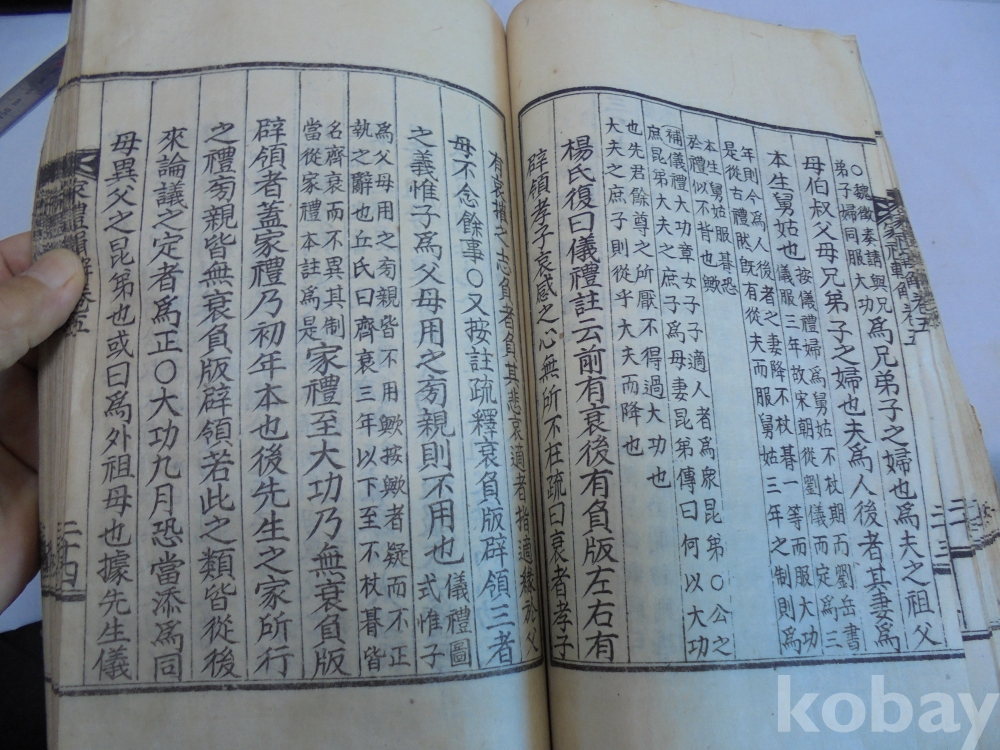 ○魏徵奏請與兄
弟子婦同服大功
爲兄弟子之婦也爲夫之祖父
母伯叔父母兄弟子之婦也夫爲人後者其妻爲
本生舅姑也
按儀禮婦爲舅姑不杖期而劉岳書
儀服三年故宋朝從劉儀而定爲三
年則今爲人後者之妻降不杖朞一等而服大功
是從古禮既有從夫而服舅姑三年之制則爲
本生舅姑服朞恐
於禮似不背也歟
補儀禮大功章女子子適人者爲衆昆弟○公之
庶昆弟大夫之庶子爲母妻昆弟傳曰何以大功
也先君餘尊之所厭不得過大功也
大夫之庶子則從乎大夫而降也
楊氏復曰儀禮註云前有衰後有負版左右有
辟領孝子哀慼之心無所不在疏曰衰者孝子
有哀摧之志負者負其悲哀適者指適緣於父
母不念餘事○又按註疏釋衰負版辟領三者
之義惟子爲父母用之旁親則不用也
儀禮圖
式惟子
爲父母用之旁親皆不用歟按歟者疑而不正
執之辭也丘氏曰齊衰三年以下至不杖朞皆
名齊衰而不異其制
當從家禮本註爲是
家禮至大功乃無衰負版
辟領者蓋家禮乃初年本也後先生之家所行
之禮旁親皆無衰負版辟領若此之類皆從後
來論議之定者爲正○大功九月恐當添爲同
母異父之昆弟也或曰爲外祖母也據先生儀
家禮輯解卷五
二十三
家禮輯解卷五
二十四
kobay